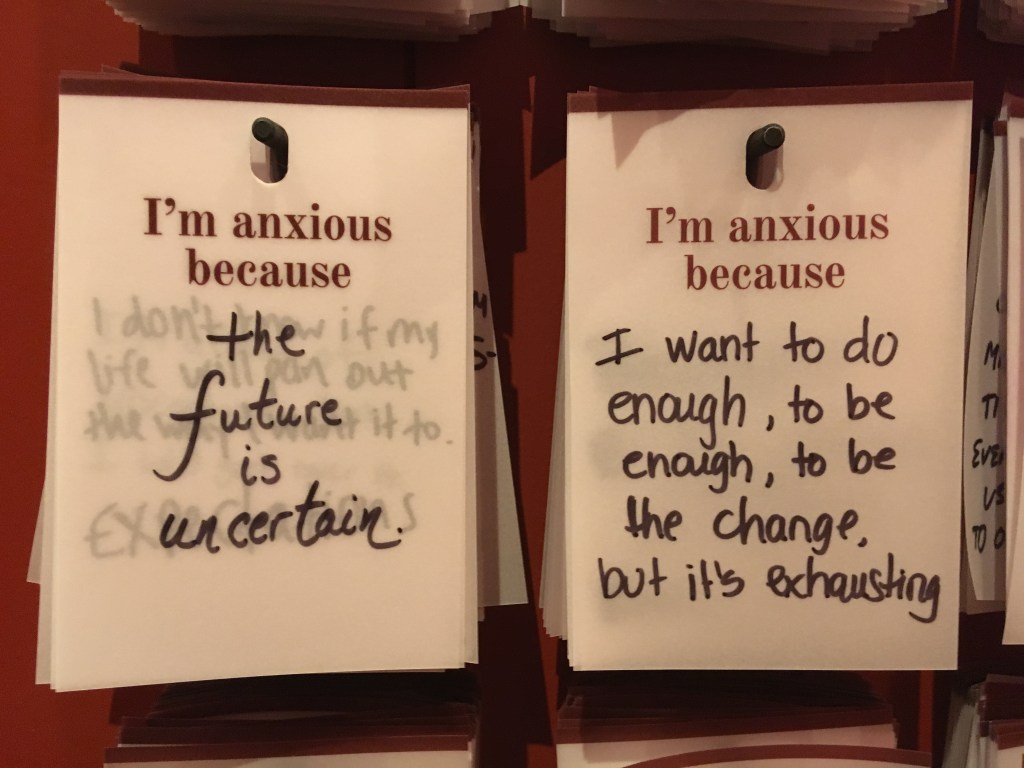 I'm anxious
because
the
future
is
uncertain.
I don't know if my
life will pan out
the way I want it to.
I'm anxious
because
I want to do
enough, to be
enough, to be
the change,
but it's exhausting